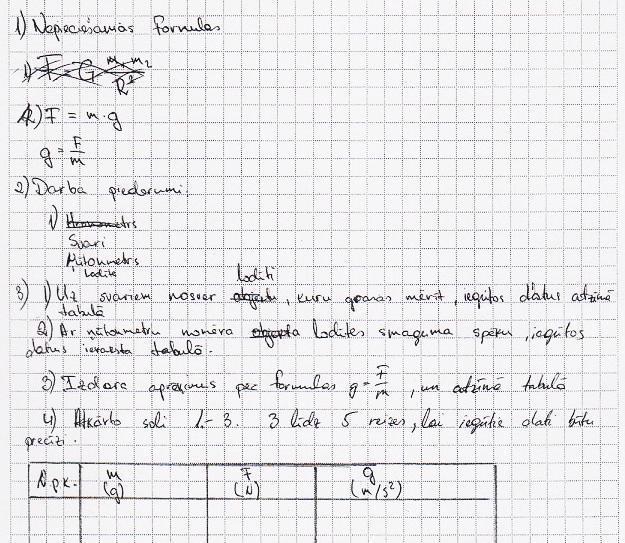 1) Nepieciešamās formulas
1) F = G m1 m2 / R²
1) F = m·g
g = F/m
2) Darba piederumi.
1)
Svari
Ņūtonmetrs
Lodīte
3) 1) Uz svariem nosver lodīti, kuru gramas mērīt, iegūtos datus atzīmē
tabulā
2) Ar ņūtonmetru nomēra lodītes smaguma spēku, iegūtos
datus ieraksta tabulā.
3) Izdara aprēķinus pēc formulas g = F/m, un atzīmē tabulā
4) Atkārto soli 1.-3. 3 līdz 5 reizes, lai iegūtie dati būtu
precīzi.
N.p.k. m (g) F (N) g (m/s²)